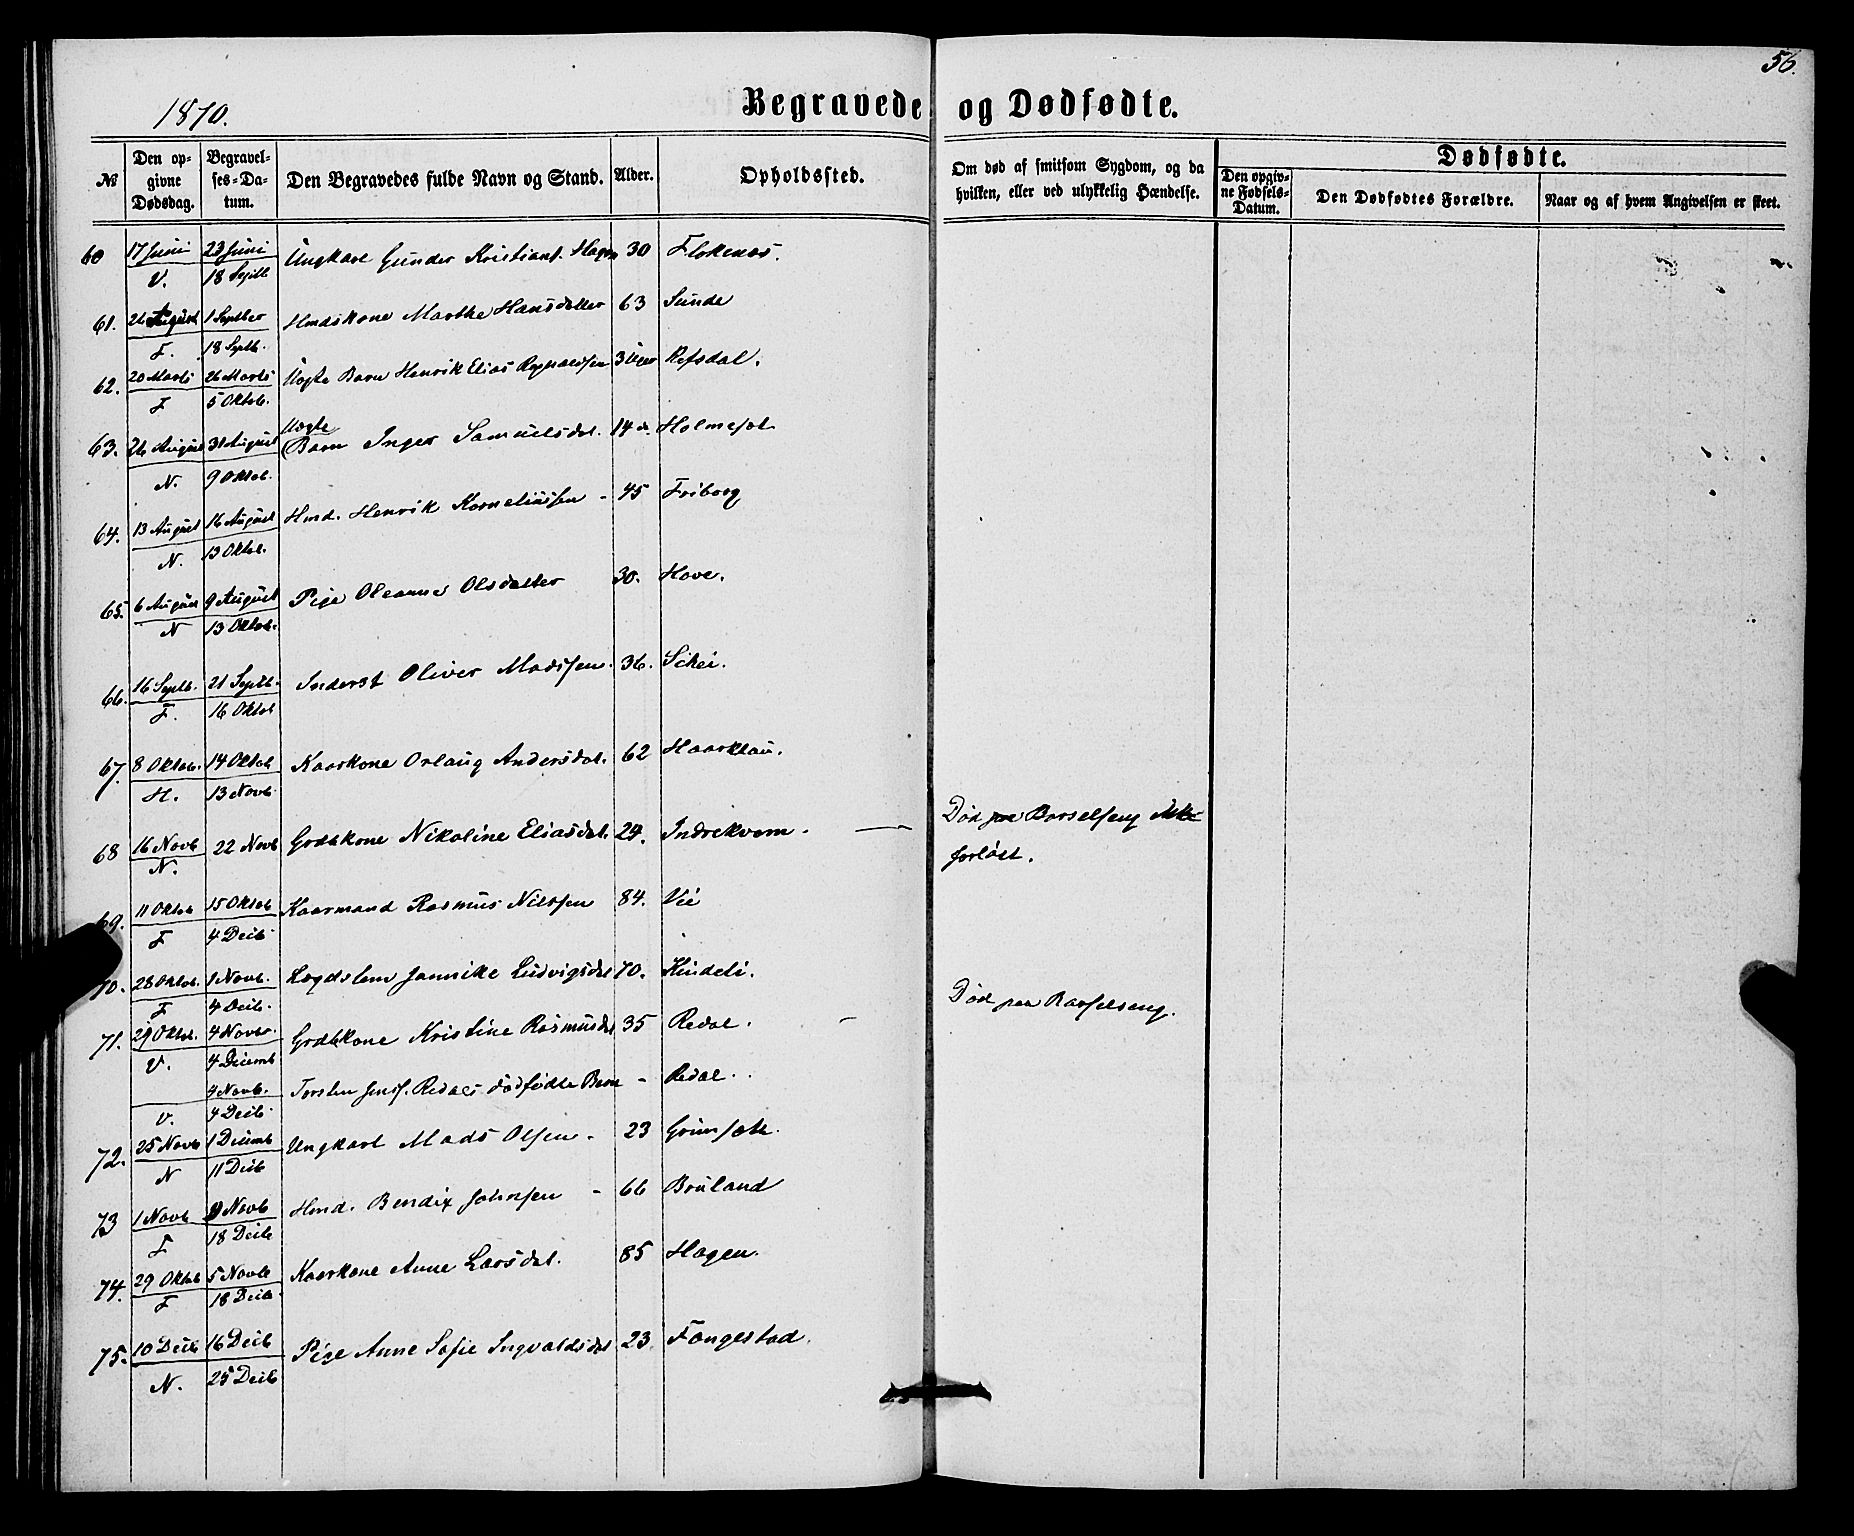 56.
1870.
Begravede og Dødfødte.
№
Den op-
givne
Dødsdag.
Begravel-
ses-Da-
tum.
Den Begravedes fulde Navn og Stand.
Alder.
Opholdssted.
Om død af smitsom Sygdom, og da
hvilken, eller ved ulykkelig Hændelse.
Dødfødte.
Den opgiv-
ne Fødsels-
Datum.
Den Dødfødtes Forældre.
Naar og af hvem Angivelsen er skeet.
60 17 Juni 23 Juni Ungkarl Gunder Kristians. 30 Flokenæs.
V. 18 Septb
61. 26 August 1 Septber Hmdskone Marthe Hansdatter 63 Sunde
F. 18 Septb.
62. 20 Marts 26 Marts Uægte Barn Henrik Elias 3 Uger Refsdal.
F 5 Oktob.
63. 26 August 31 August Uægte Barn Inger Samuelsdat. 14 d.
N. 9 Oktob.
64. 13 August 16 August Hmd. Henrik Korneliussen - 45 Friborg
N. 13 Oktob.
65. 6 August 9 August Pige Oleanne Olsdatter 30. Hove.
N 13 Oktob.
66. 16 Septb. 21 Septb. Inderst Oliver Madssen. 36. Schei.
F. 16 Oktob
67. 8 Oktob. 14 Oktob Kaarkone Orlaug Andersdat. 62 Haarklau.
H. 13 Novb
68 16 Novb 22 Novb Grdbkone Nikoline Eliasdat. 24. Indrekvam. — Død paa Barselseng
N. forløst.
69. 11 Oktob 15 Oktob Kaarmand Rasmus Nilssen 84. Vie
F 4 Decb.
70. 28 Oktob. 1 Novb. Lægdslem Jannike Ludvigsdat 70. Kindeli.
F 4 Decb.
71. 29 Oktob. 4 Novb. Grdbkone Kristine Rasmusdat 35 Redal. — Død paa Barselseng.
V. 4 Decemb
4 Novb. Torsten Jenss. Redals dødfødte Barn - Redal.
V. 4 Decb.
72. 25 Novb 1 Decemb Ungkarl Mads Olsen. 23
N 11 Decb
73 1 Novb 9 Novb Hmd. Bendix Johnsen - 66 Bruland
F 18 Decb
74. 29 Oktob 5 Novb Kaarkone Anne Larsdat. 85 Hagen.
F 18 Decb.
75. 10 Decb 16 Decb Pige Anne Sofie Ingvaldsdat 23. Fongestad.
N. 25 Decb